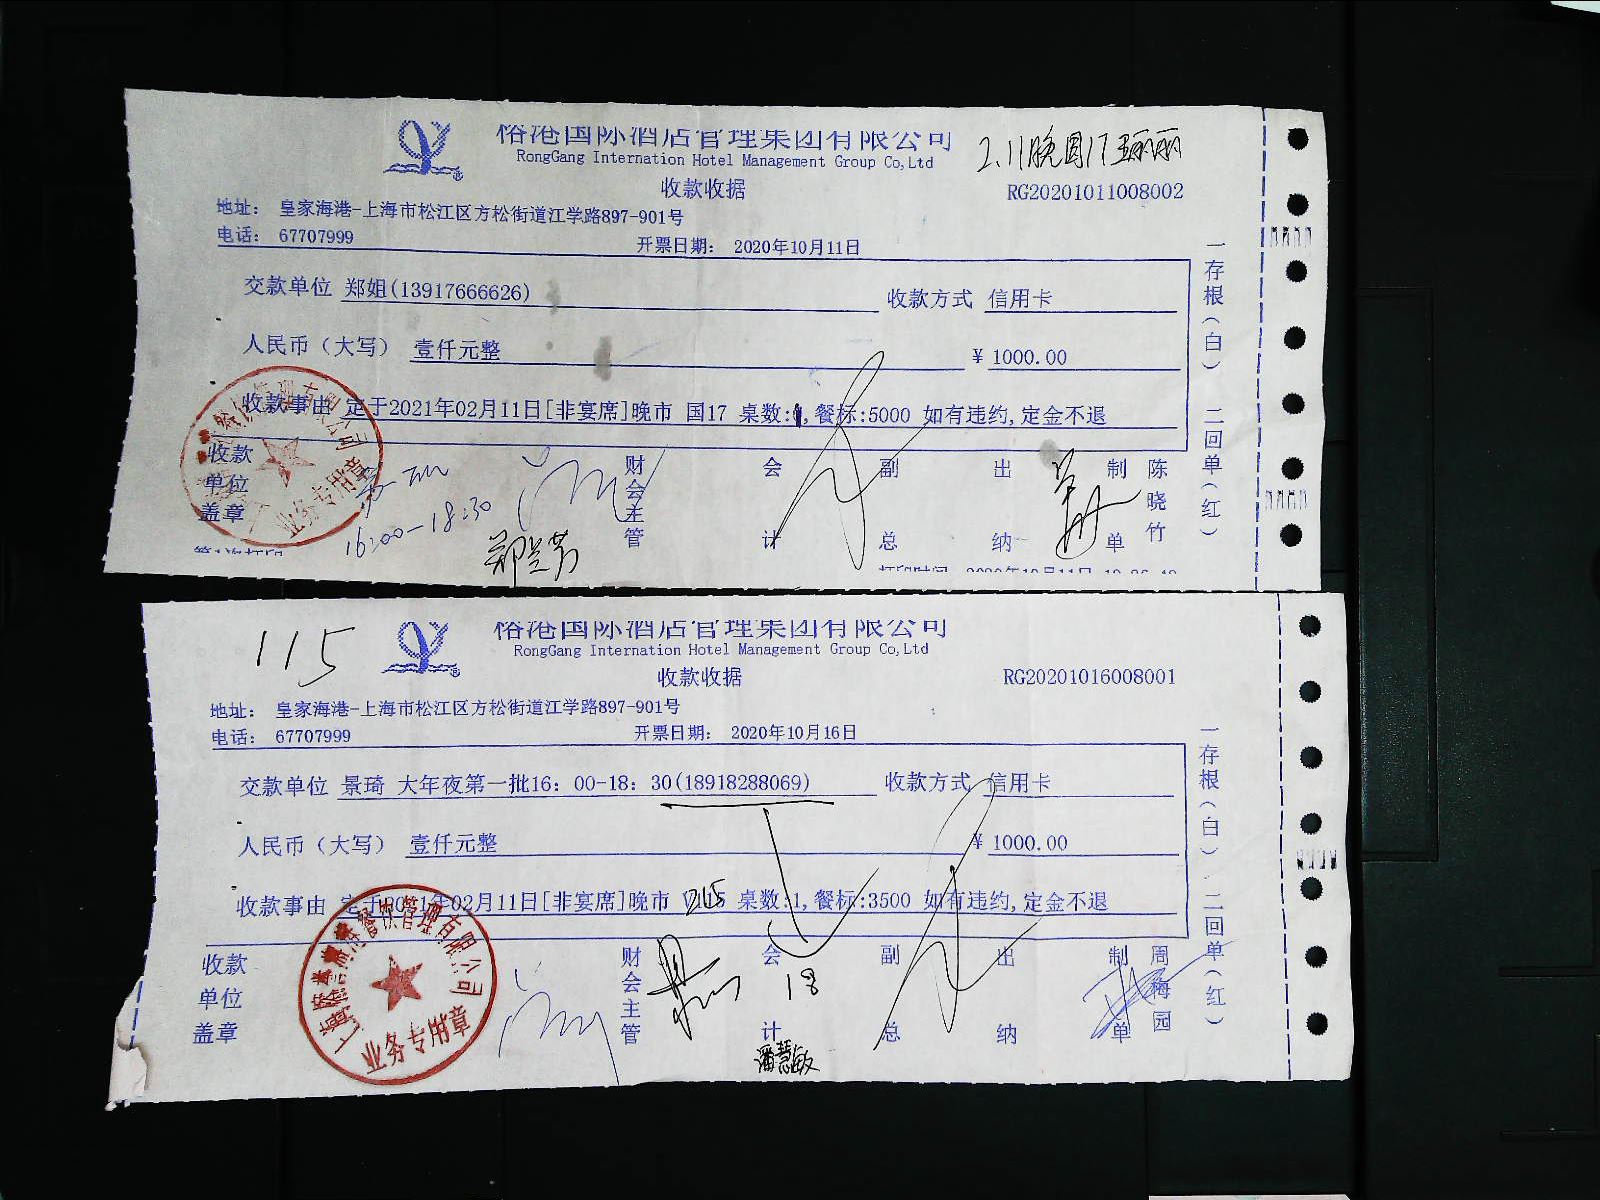 裕港国际酒店管理集团有限公司
RongGang Internation Hotel Management Group Co,Ltd
2.11晚国17 丽丽
收款收据
RG20201011008002
地址： 皇家海港-上海市松江区方松街道江学路897-901号
电话： 67707999
开票日期： 2020年10月11日
交款单位 郑姐(13917666626)
收款方式 信用卡
人民币（大写） 壹仟元整
¥ 1000.00
收款事由 定于2021年02月11日[非宴席]晚市 国17 桌数:1,餐标:5000 如有违约,定金不退
收款单位盖章
财会主管
会计
副总
出纳
制单
陈晓竹
一存根（白） 二回单（红）
业务专用章
16:00-18:30
郑兰芳
第1次打印
打印时间 2020年10月11日
115
裕港国际酒店管理集团有限公司
RongGang Internation Hotel Management Group Co,Ltd
收款收据
RG20201016008001
地址： 皇家海港-上海市松江区方松街道江学路897-901号
电话： 67707999
开票日期： 2020年10月16日
交款单位 景琦 大年夜第一批16：00-18：30(18918288069)
收款方式 信用卡
人民币（大写） 壹仟元整
¥ 1000.00
收款事由 定于2021年02月11日[非宴席]晚市 V115 桌数:1,餐标:3500 如有违约,定金不退
收款单位盖章
财会主管
会计
副总
出纳
制单
周梅园
一存根（白） 二回单（红）
餐饮管理有限公司
业务专用章
18
潘慧敏